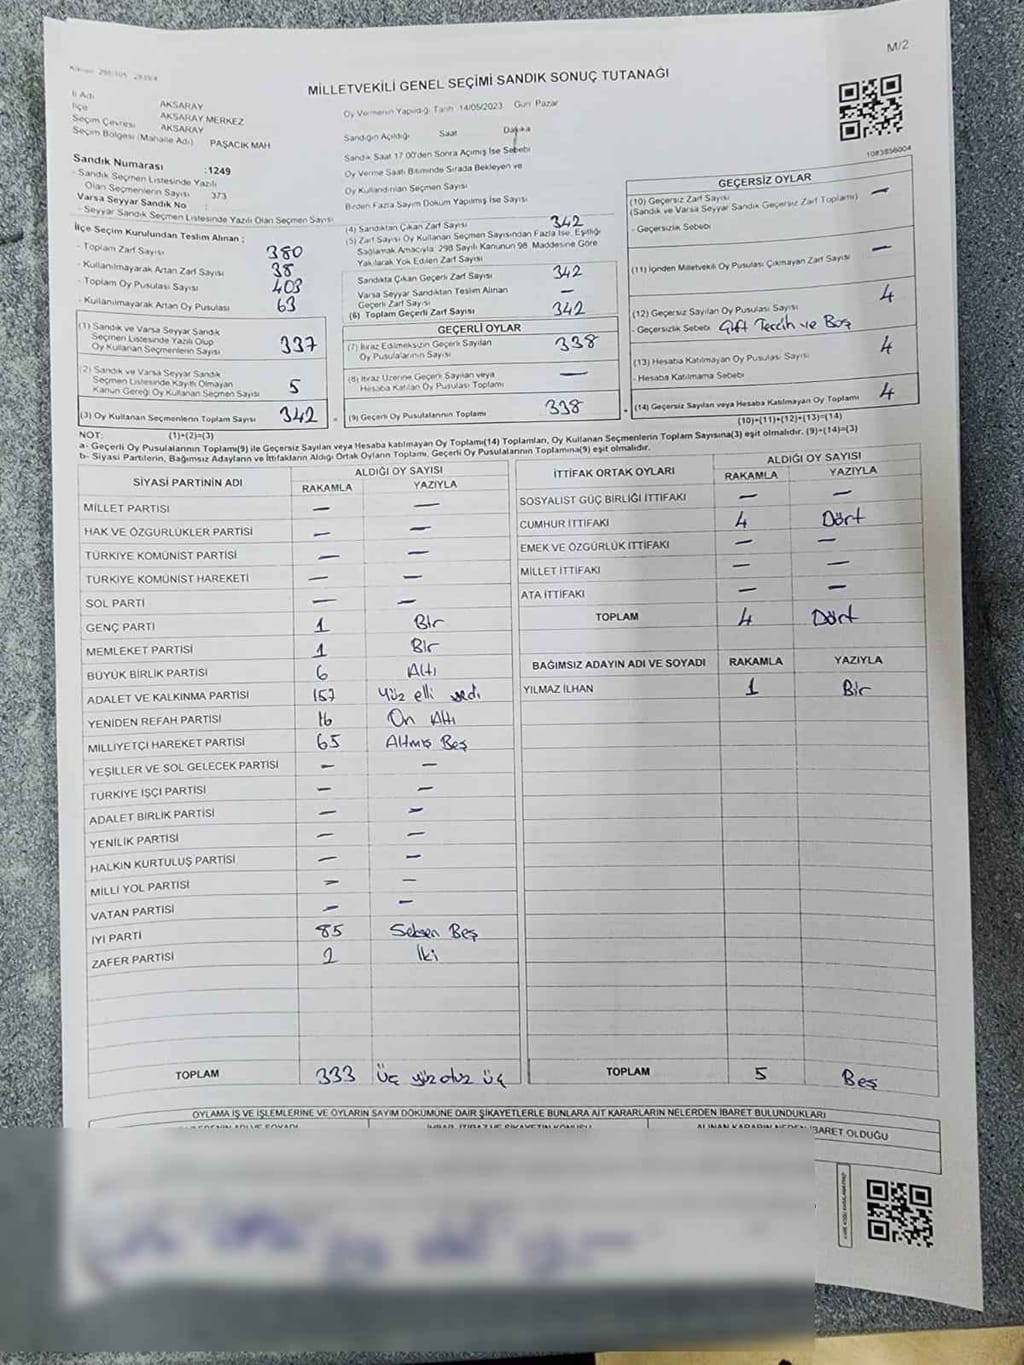 M/2
MİLLETVEKİLİ GENEL SEÇİMİ SANDIK SONUÇ TUTANAĞI
İl Adı AKSARAY
İlçe AKSARAY MERKEZ
Seçim Çevresi AKSARAY
Seçim Bölgesi (Mahalle Adı) PAŞACIK MAH
Sandık Numarası :1249
- Sandık Seçmen Listesinde Yazılı
Olan Seçmenlerin Sayısı 373
Varsa Seyyar Sandık No :
- Seyyar Sandık Seçmen Listesinde Yazılı Olan Seçmen Sayısı
Oy Vermenin Yapıldığı Tarih 14/05/2023 Gün Pazar
Sandığın Açıldığı Saat Dakika
Sandık Saat 17.00'den Sonra Açılmış İse Sebebi
Oy Verme Saati Bitiminde Sırada Bekleyen ve
Oy Kullandırılan Seçmen Sayısı
Birden Fazla Sayım Döküm Yapılmış İse Sayısı
1083856004
İlçe Seçim Kurulundan Teslim Alınan ;
- Toplam Zarf Sayısı 380
- Kullanılmayarak Artan Zarf Sayısı 38
- Toplam Oy Pusulası Sayısı 403
- Kullanılmayarak Artan Oy Pusulası 63
(1) Sandık ve Varsa Seyyar Sandık
Seçmen Listesinde Yazılı Olup
Oy Kullanan Seçmenlerin Sayısı 337
(2) Sandık ve Varsa Seyyar Sandık
Seçmen Listesinde Kayıtlı Olmayan
Kanun Gereği Oy Kullanan Seçmen Sayısı 5
(3) Oy Kullanan Seçmenlerin Toplam Sayısı 342 =
(1)+(2)=(3)
(4) Sandıktan Çıkan Zarf Sayısı 342
(5) Zarf Sayısı Oy Kullanan Seçmen Sayısından Fazla İse, Eşitliği
Sağlamak Amacıyla, 298 Sayılı Kanunun 98. Maddesine Göre
Yakılarak Yok Edilen Zarf Sayısı
Sandıkta Çıkan Geçerli Zarf Sayısı 342
Varsa Seyyar Sandıktan Teslim Alınan
Geçerli Zarf Sayısı —
(6) Toplam Geçerli Zarf Sayısı 342
GEÇERLİ OYLAR
(7) İtiraz Edilmeksizin Geçerli Sayılan
Oy Pusulalarının Sayısı 338
(8) İtiraz Üzerine Geçerli Sayılan veya
Hesaba Katılan Oy Pusulası Toplamı —
(9) Geçerli Oy Pusulalarının Toplamı 338 +
GEÇERSİZ OYLAR
(10) Geçersiz Zarf Sayısı —
(Sandık ve Varsa Seyyar Sandık Geçersiz Zarf Toplamı)
- Geçersizlik Sebebi
(11) İçinden Milletvekili Oy Pusulası Çıkmayan Zarf Sayısı —
(12) Geçersiz Sayılan Oy Pusulası Sayısı 4
- Geçersizlik Sebebi Çift Tercih ve Boş
(13) Hesaba Katılmayan Oy Pusulası Sayısı 4
- Hesaba Katılmama Sebebi
(14) Geçersiz Sayılan veya Hesaba Katılmayan Oy Toplamı 4
(10)+(11)+(12)+(13)=(14)
NOT:
a- Geçerli Oy Pusulalarının Toplamı(9) ile Geçersiz Sayılan veya Hesaba katılmayan Oy Toplamı(14) Toplamları, Oy Kullanan Seçmenlerin Toplam Sayısına(3) eşit olmalıdır. (9)+(14)=(3)
b- Siyasi Partilerin, Bağımsız Adayların ve İttifakların Aldığı Ortak Oyların Toplamı, Geçerli Oy Pusulalarının Toplamına(9) eşit olmalıdır.
SİYASİ PARTİNİN ADI ALDIĞI OY SAYISI
RAKAMLA YAZIYLA
MİLLET PARTİSİ — —
HAK VE ÖZGÜRLÜKLER PARTİSİ — —
TÜRKİYE KOMÜNİST PARTİSİ — —
TÜRKİYE KOMÜNİST HAREKETİ — —
SOL PARTİ — —
GENÇ PARTİ 1 Bir
MEMLEKET PARTİSİ 1 Bir
BÜYÜK BİRLİK PARTİSİ 6 Altı
ADALET VE KALKINMA PARTİSİ 157 Yüz elli yedi
YENİDEN REFAH PARTİSİ 16 On Altı
MİLLİYETÇİ HAREKET PARTİSİ 65 Altmış Beş
YEŞİLLER VE SOL GELECEK PARTİSİ — —
TÜRKİYE İŞÇİ PARTİSİ — —
ADALET BİRLİK PARTİSİ — —
YENİLİK PARTİSİ — —
HALKIN KURTULUŞ PARTİSİ — —
MİLLİ YOL PARTİSİ — —
VATAN PARTİSİ — —
İYİ PARTİ 85 Seksen Beş
ZAFER PARTİSİ 2 İki
TOPLAM 333 Üç yüz otuz üç
İTTİFAK ORTAK OYLARI ALDIĞI OY SAYISI
RAKAMLA YAZIYLA
SOSYALİST GÜÇ BİRLİĞİ İTTİFAKI — —
CUMHUR İTTİFAKI 4 Dört
EMEK VE ÖZGÜRLÜK İTTİFAKI — —
MİLLET İTTİFAKI — —
ATA İTTİFAKI — —
TOPLAM 4 Dört
BAĞIMSIZ ADAYIN ADI VE SOYADI RAKAMLA YAZIYLA
YILMAZ İLHAN 1 Bir
TOPLAM 5 Beş
OYLAMA İŞ VE İŞLEMLERİNE VE OYLARIN SAYIM DÖKÜMÜNE DAİR ŞİKAYETLERLE BUNLARA AİT KARARLARIN NELERDEN İBARET BULUNDUKLARI
İBARET OLDUĞU